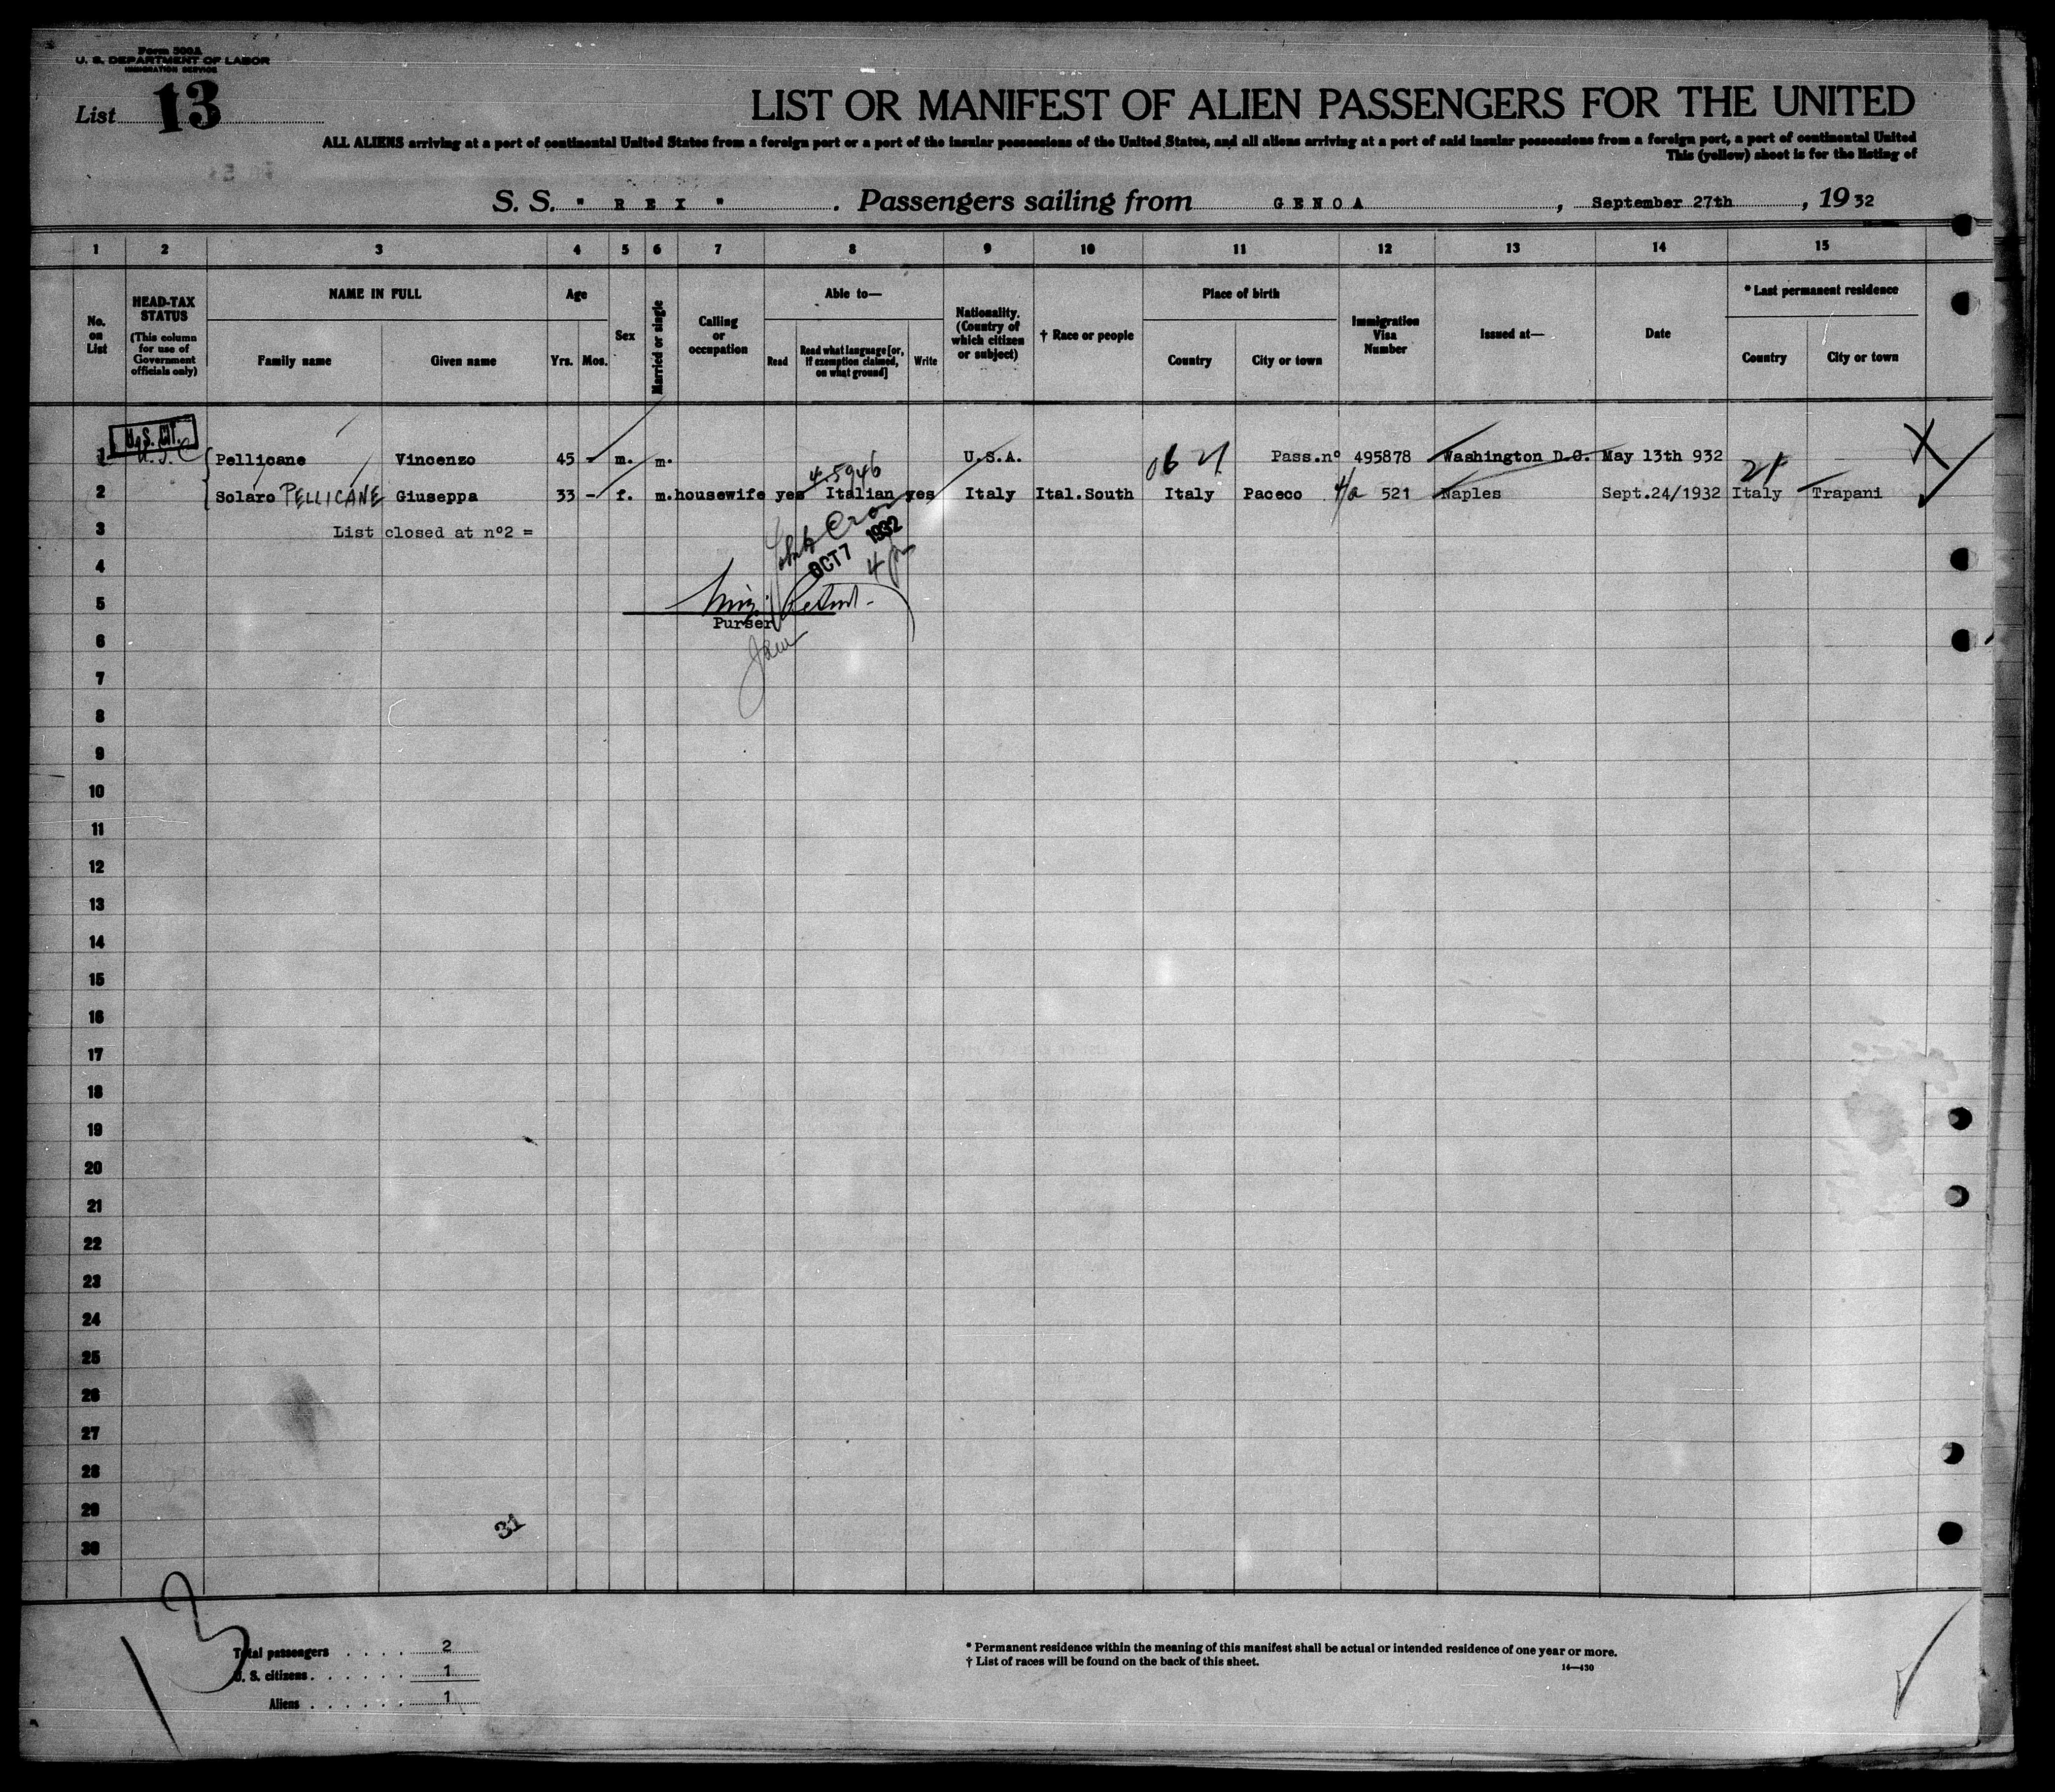 Form 500A
U. S. DEPARTMENT OF LABOR
IMMIGRATION SERVICE
List 13
LIST OR MANIFEST OF ALIEN PASSENGERS FOR THE UNITED
ALL ALIENS arriving at a port of continental United States from a foreign port or a port of the insular possessions of the United States, and all aliens arriving at a port of said insular possessions from a foreign port, a port of continental United
This (yellow) sheet is for the listing of
S. S. " R E X " . Passengers sailing from G E N O A , September 27th , 19 32
1 2 3 4 5 6 7 8 9 10 11 12 13 14 15
No. on List
HEAD-TAX STATUS
(This column for use of Government officials only)
NAME IN FULL
Family name Given name
Age
Yrs. Mos.
Sex
Married or single
Calling or occupation
Able to—
Read
Read what language [or, if exemption claimed, on what ground]
Write
Nationality. (Country of which citizen or subject)
† Race or people
Place of birth
Country City or town
Immigration Visa Number
Issued at—
Date
* Last permanent residence
Country City or town
U. S. CIT.
1 U.S.C Pellicane Vincenzo 45 - m. m. U.S.A. Pass.nº 495878 Washington D.C. May 13th 932
4.5946
2 Solaro PELLICANE Giuseppa 33 - f. m. housewife yes Italian yes Italy Ital.South Italy Paceco 521 Naples Sept.24/1932 Italy Trapani
3 List closed at nº2 =
OCT 7 1932
4
5
Purser
6
7
8
9
10
11
12
13
14
15
16
17
18
19
20
21
22
23
24
25
26
27
28
29
30
31
13
Total passengers . . . . 2
U. S. citizens . . . . . . 1
Aliens . . . . . . 1
* Permanent residence within the meaning of this manifest shall be actual or intended residence of one year or more.
† List of races will be found on the back of this sheet.
14—430